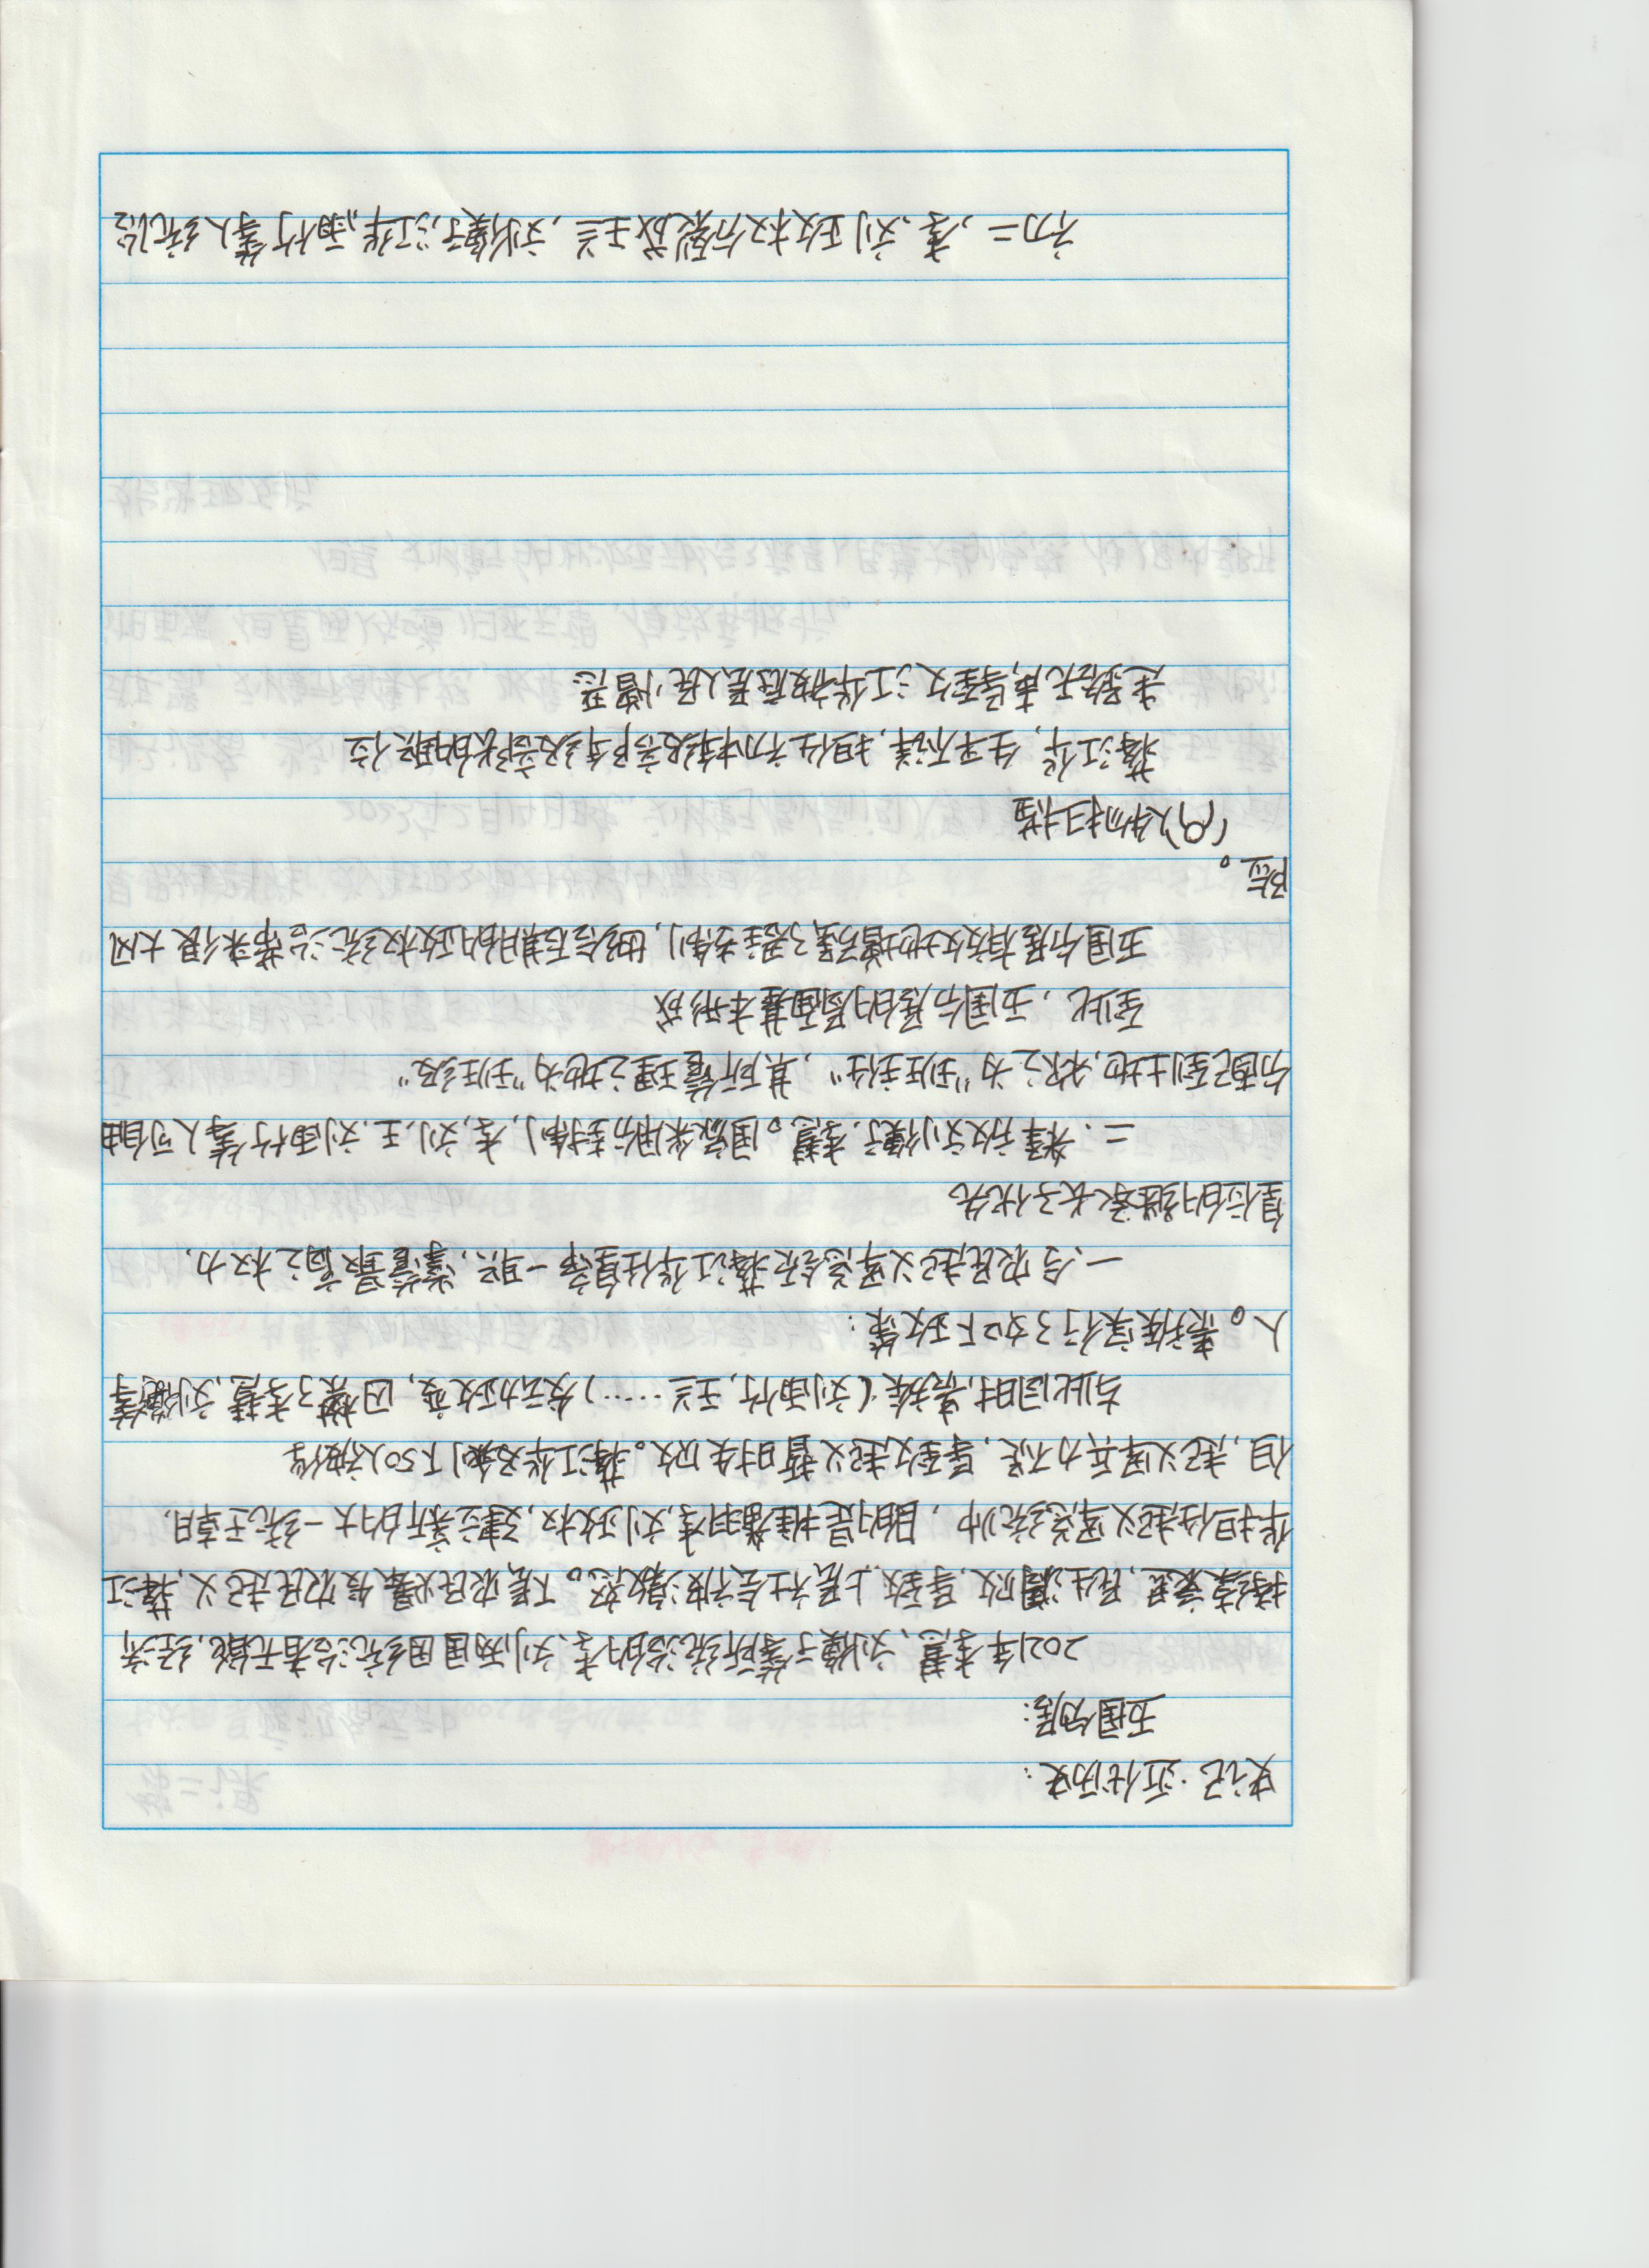 史记·近代历史：
五国分居：
2021年李慧、刘衡于等所统治的李、刘两国因统治者无能，经济
持续衰退，民生凋败，导致上层社会被激怒。下层农民爆发农民起义，蒋江
华担任起义军总统帅，目的是推翻李，刘政权，建立新的大一统王朝，
但，起义军兵力不足，导致起义暂时失败。蒋江华及剩下50人被俘
与此同时，贵族（刘雨竹，王兰……）发动政变，囚樊了李慧，刘衡等
人。贵族实行了如下政策：
一、令农民起义军总领蒋江华任皇帝一职，掌管最高之权力，
皇位的继承长子优先
二、释放刘衡于，李慧。国家采用分封制，李，刘，王，刘雨竹等人可自由
分配到土地，称之为"班主任"，其所管理之地为"班级"
至此，五国分居的局面基本形成
五国分居有效地增强了君主专制，也给后期的政权统治带来很大风
险。
人物扫描
蒋江华，生平不详，担任初中年级部年级部长的职位
走路无声，导致江华被底层人民憎恶
初二，李、刘政权分裂成王兰，刘衡于，江华，雨竹等人统治